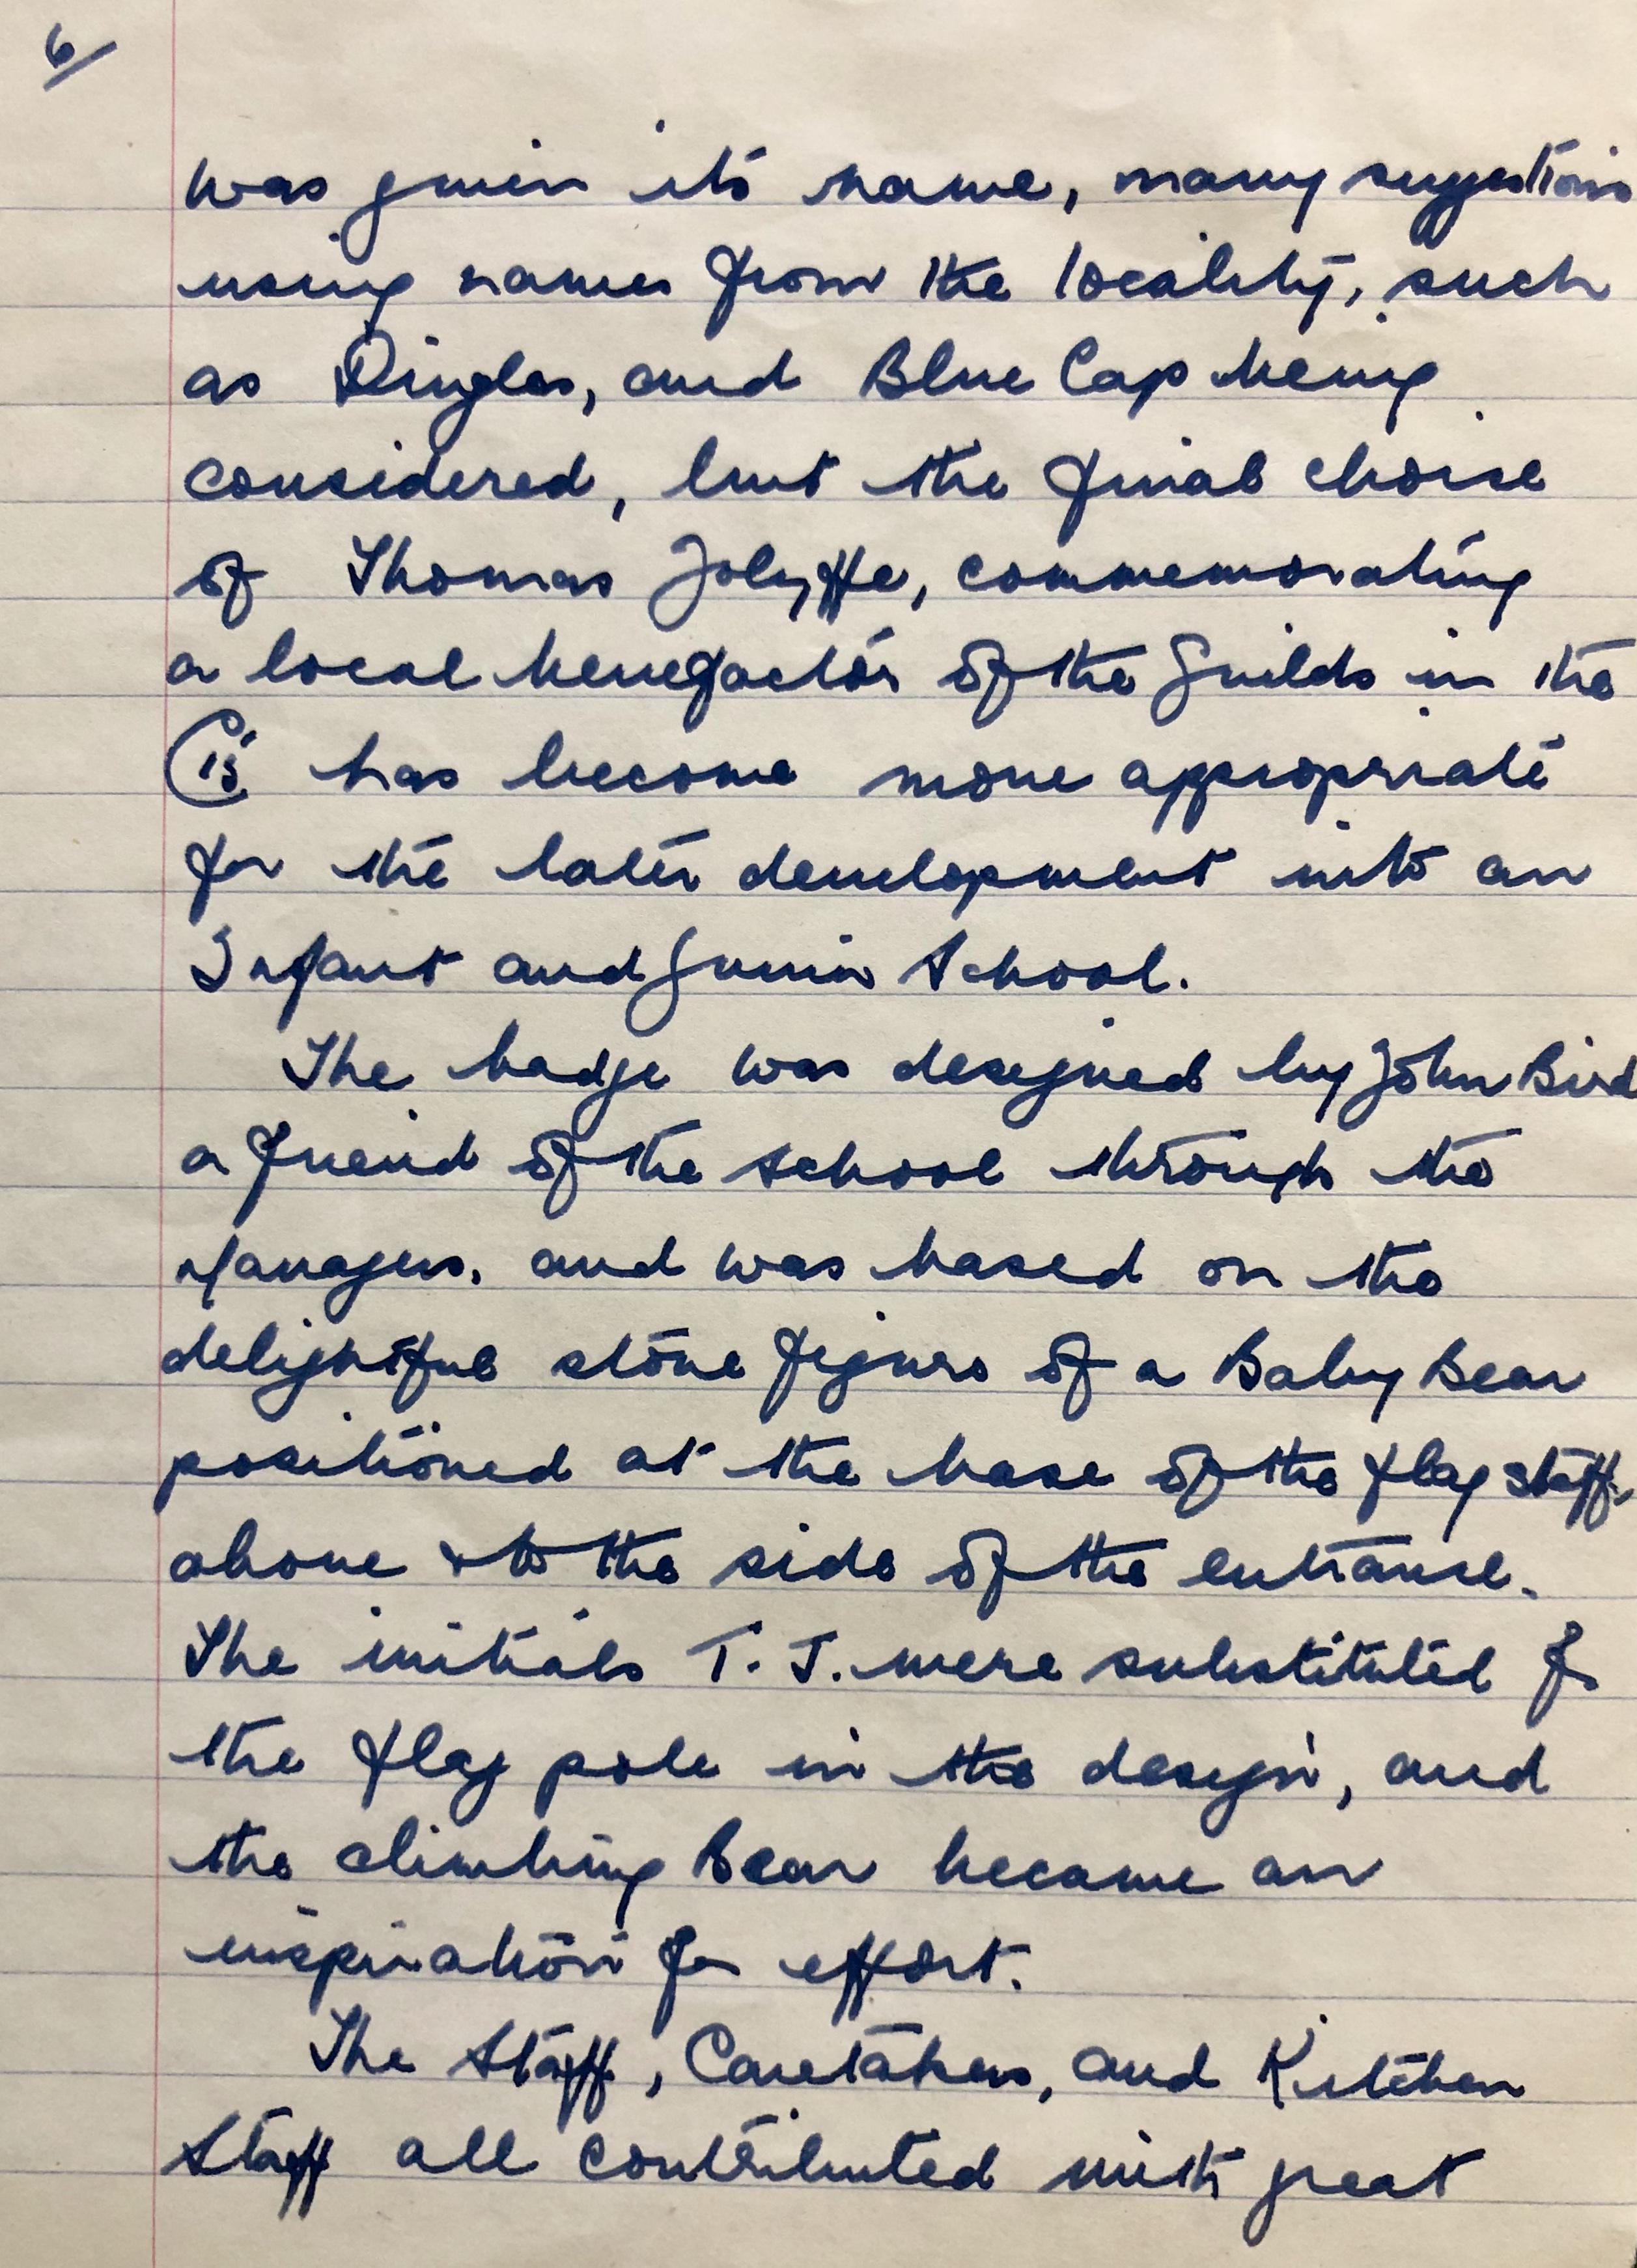 6/
was given its name, many suggestions
using names from the locality, such
as Dingles, and Blue Cap being
considered, but the final choice
of Thomas Jolyffe, commemorating
a local benefactor of the Guilds in the
C15 has become more appropriate
for the later development into an
Infant and Junior School.
The badge was designed by John Bird
a friend of the school through the
Managers, and was based on the
delightful stone figure of a Baby Bear
positioned at the base of the flag staff,
above & to the side of the entrance.
The initials T. J. were substituted for
the flag pole in the design, and
the climbing Bear became an
inspiration for effort.
The Staff, Caretakers, and Kitchen
Staff all contributed with great